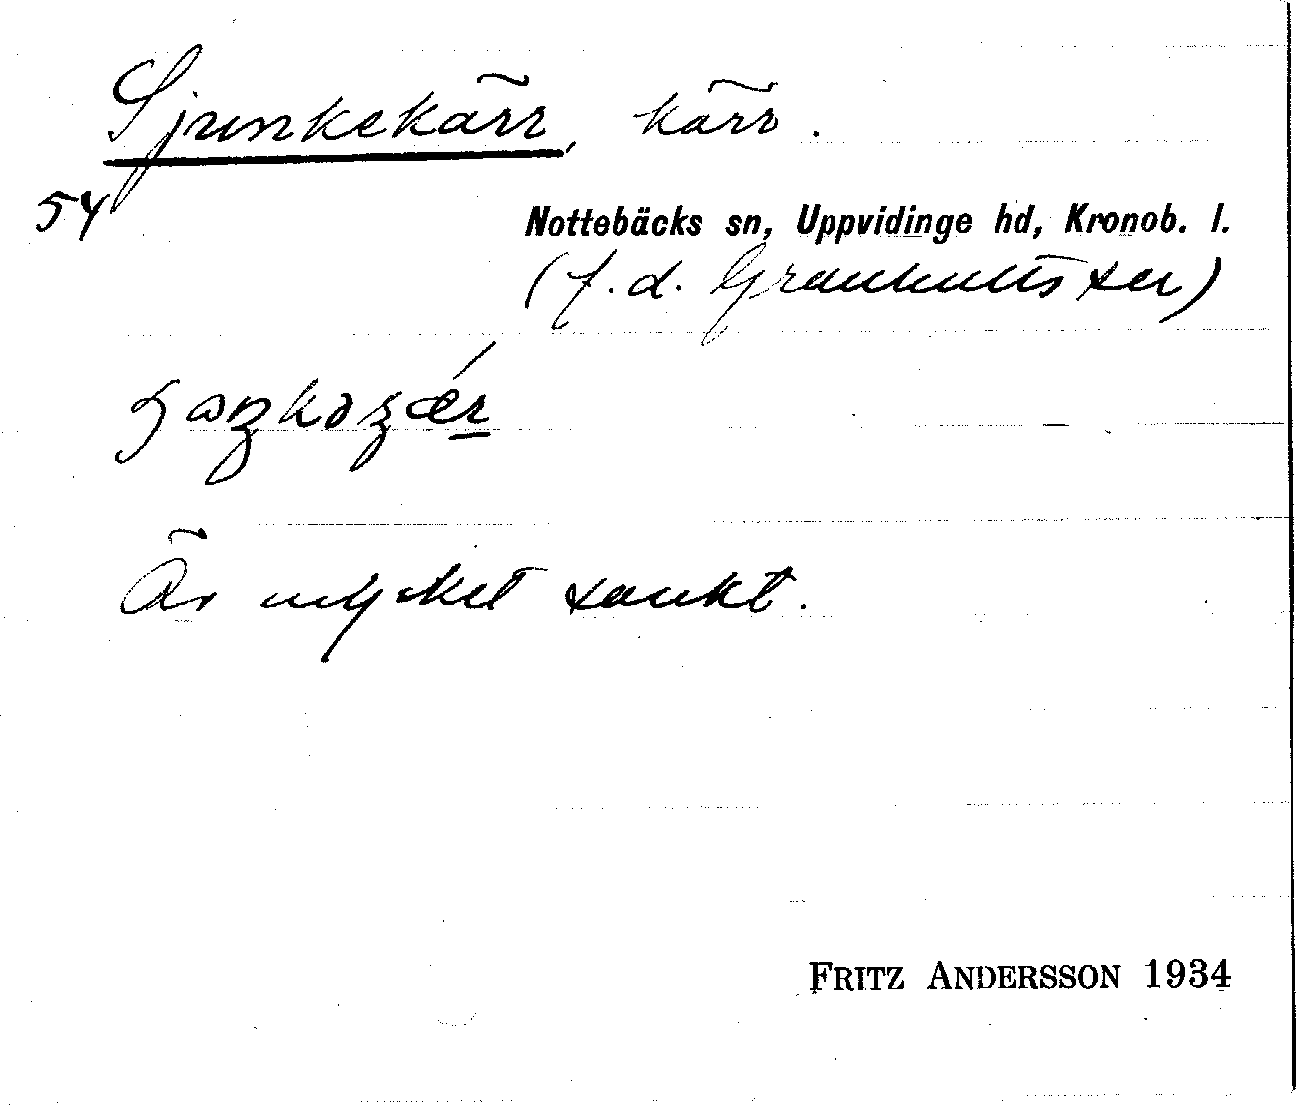 Sjunkekärr, kärr.
54
Nottebäcks sn, Uppvidinge hd, Kronob. l.
(f.d. Granhults sn)
Är mycket sankt.
FRITZ ANDERSSON 1934